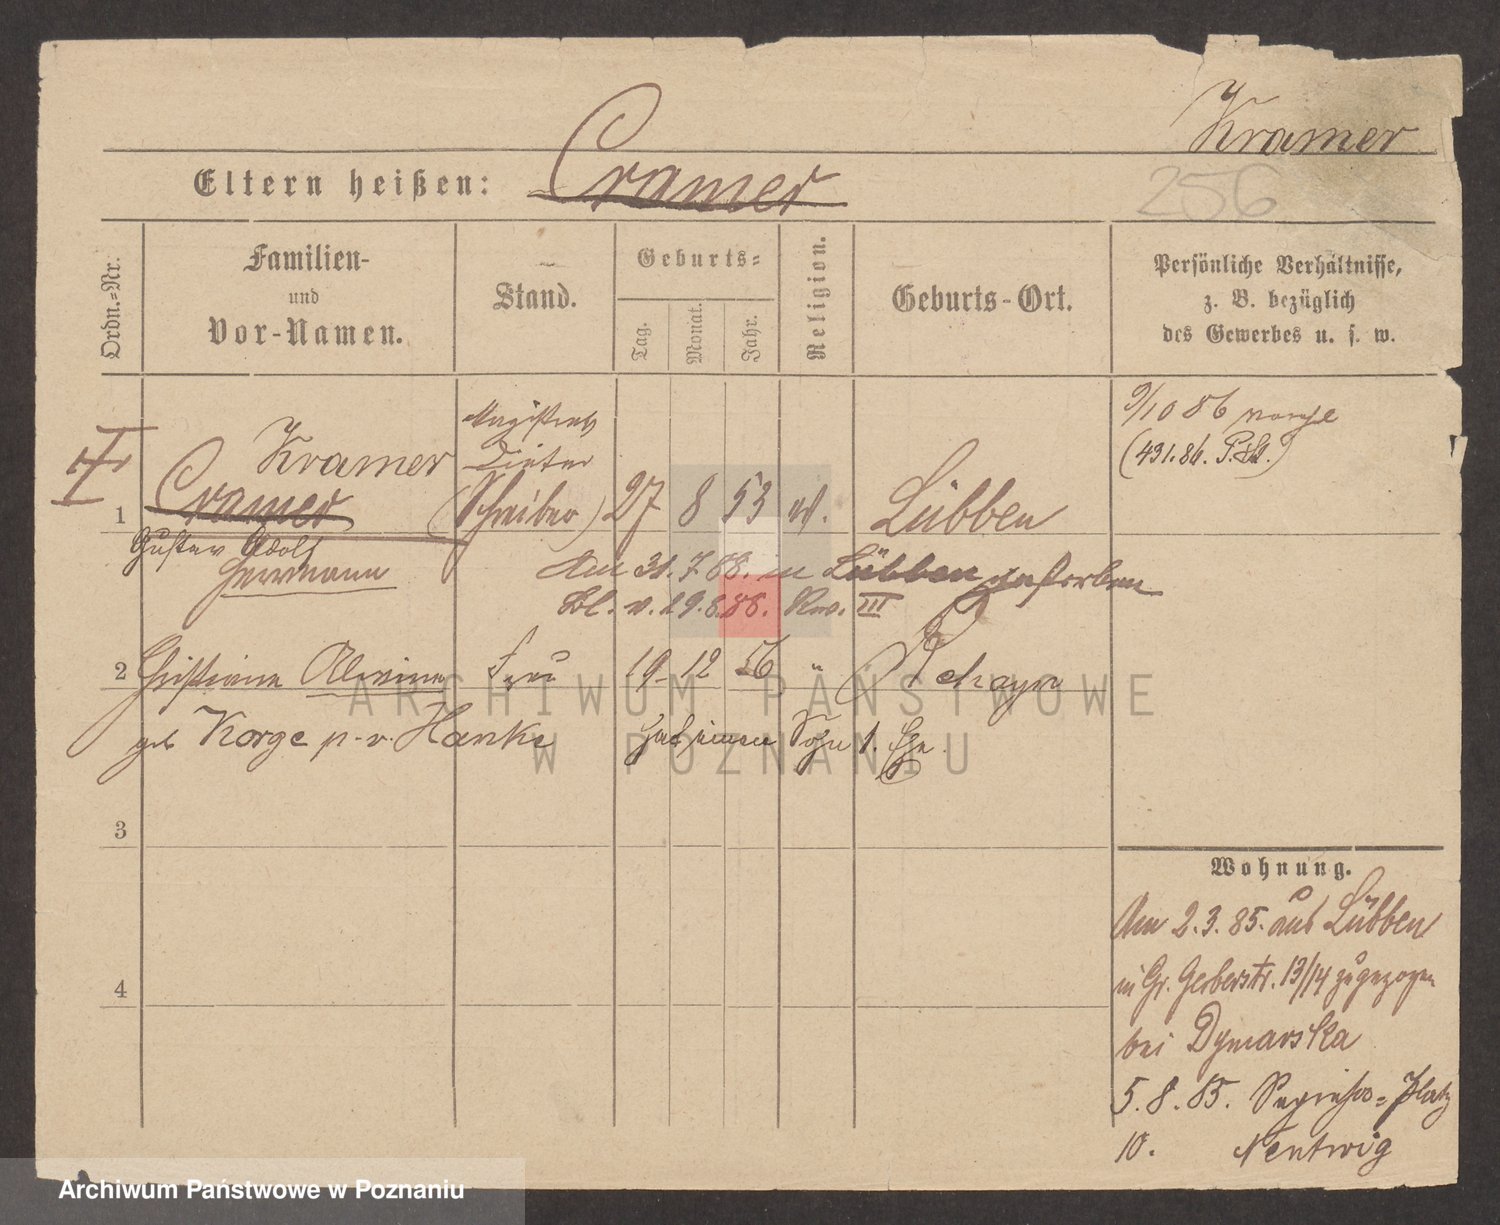 Kramer
Eltern heißen: Cramer
256
Ordn.=Nr.
Familien-
und
Vor-Namen.
Stand.
Geburts=
Tag.
Monat.
Jahr.
Religion.
Geburts-Ort.
Persönliche Verhältnisse,
z. B. bezüglich
des Gewerbes u. s. w.
9/10 86
(431.86.
Magistrats
Kramer Diätar
1 Cramer (Schreiber) 27 8 53 ev. Lübben
Gustav Adolf
Herrmann
Am 31.7.88. in Lübben gestorben
Bl. v. 19.8.88. Rev. III
2 Christiane Alwine Frau 19 12 56 "
geb Korge p. v. Hanke hat einen Sohn 1. Ehe.
3
4
Wohnung.
Am 2.3.85. aus Lübben
in Gr. Gerberstr. 13/14 zugezogen
bei Dymarska
5.8.85. Sapieha=Platz
10. Nentwig
ARCHIWUM PAŃSTWOWE
W POZNANIU
Archiwum Państwowe w Poznaniu